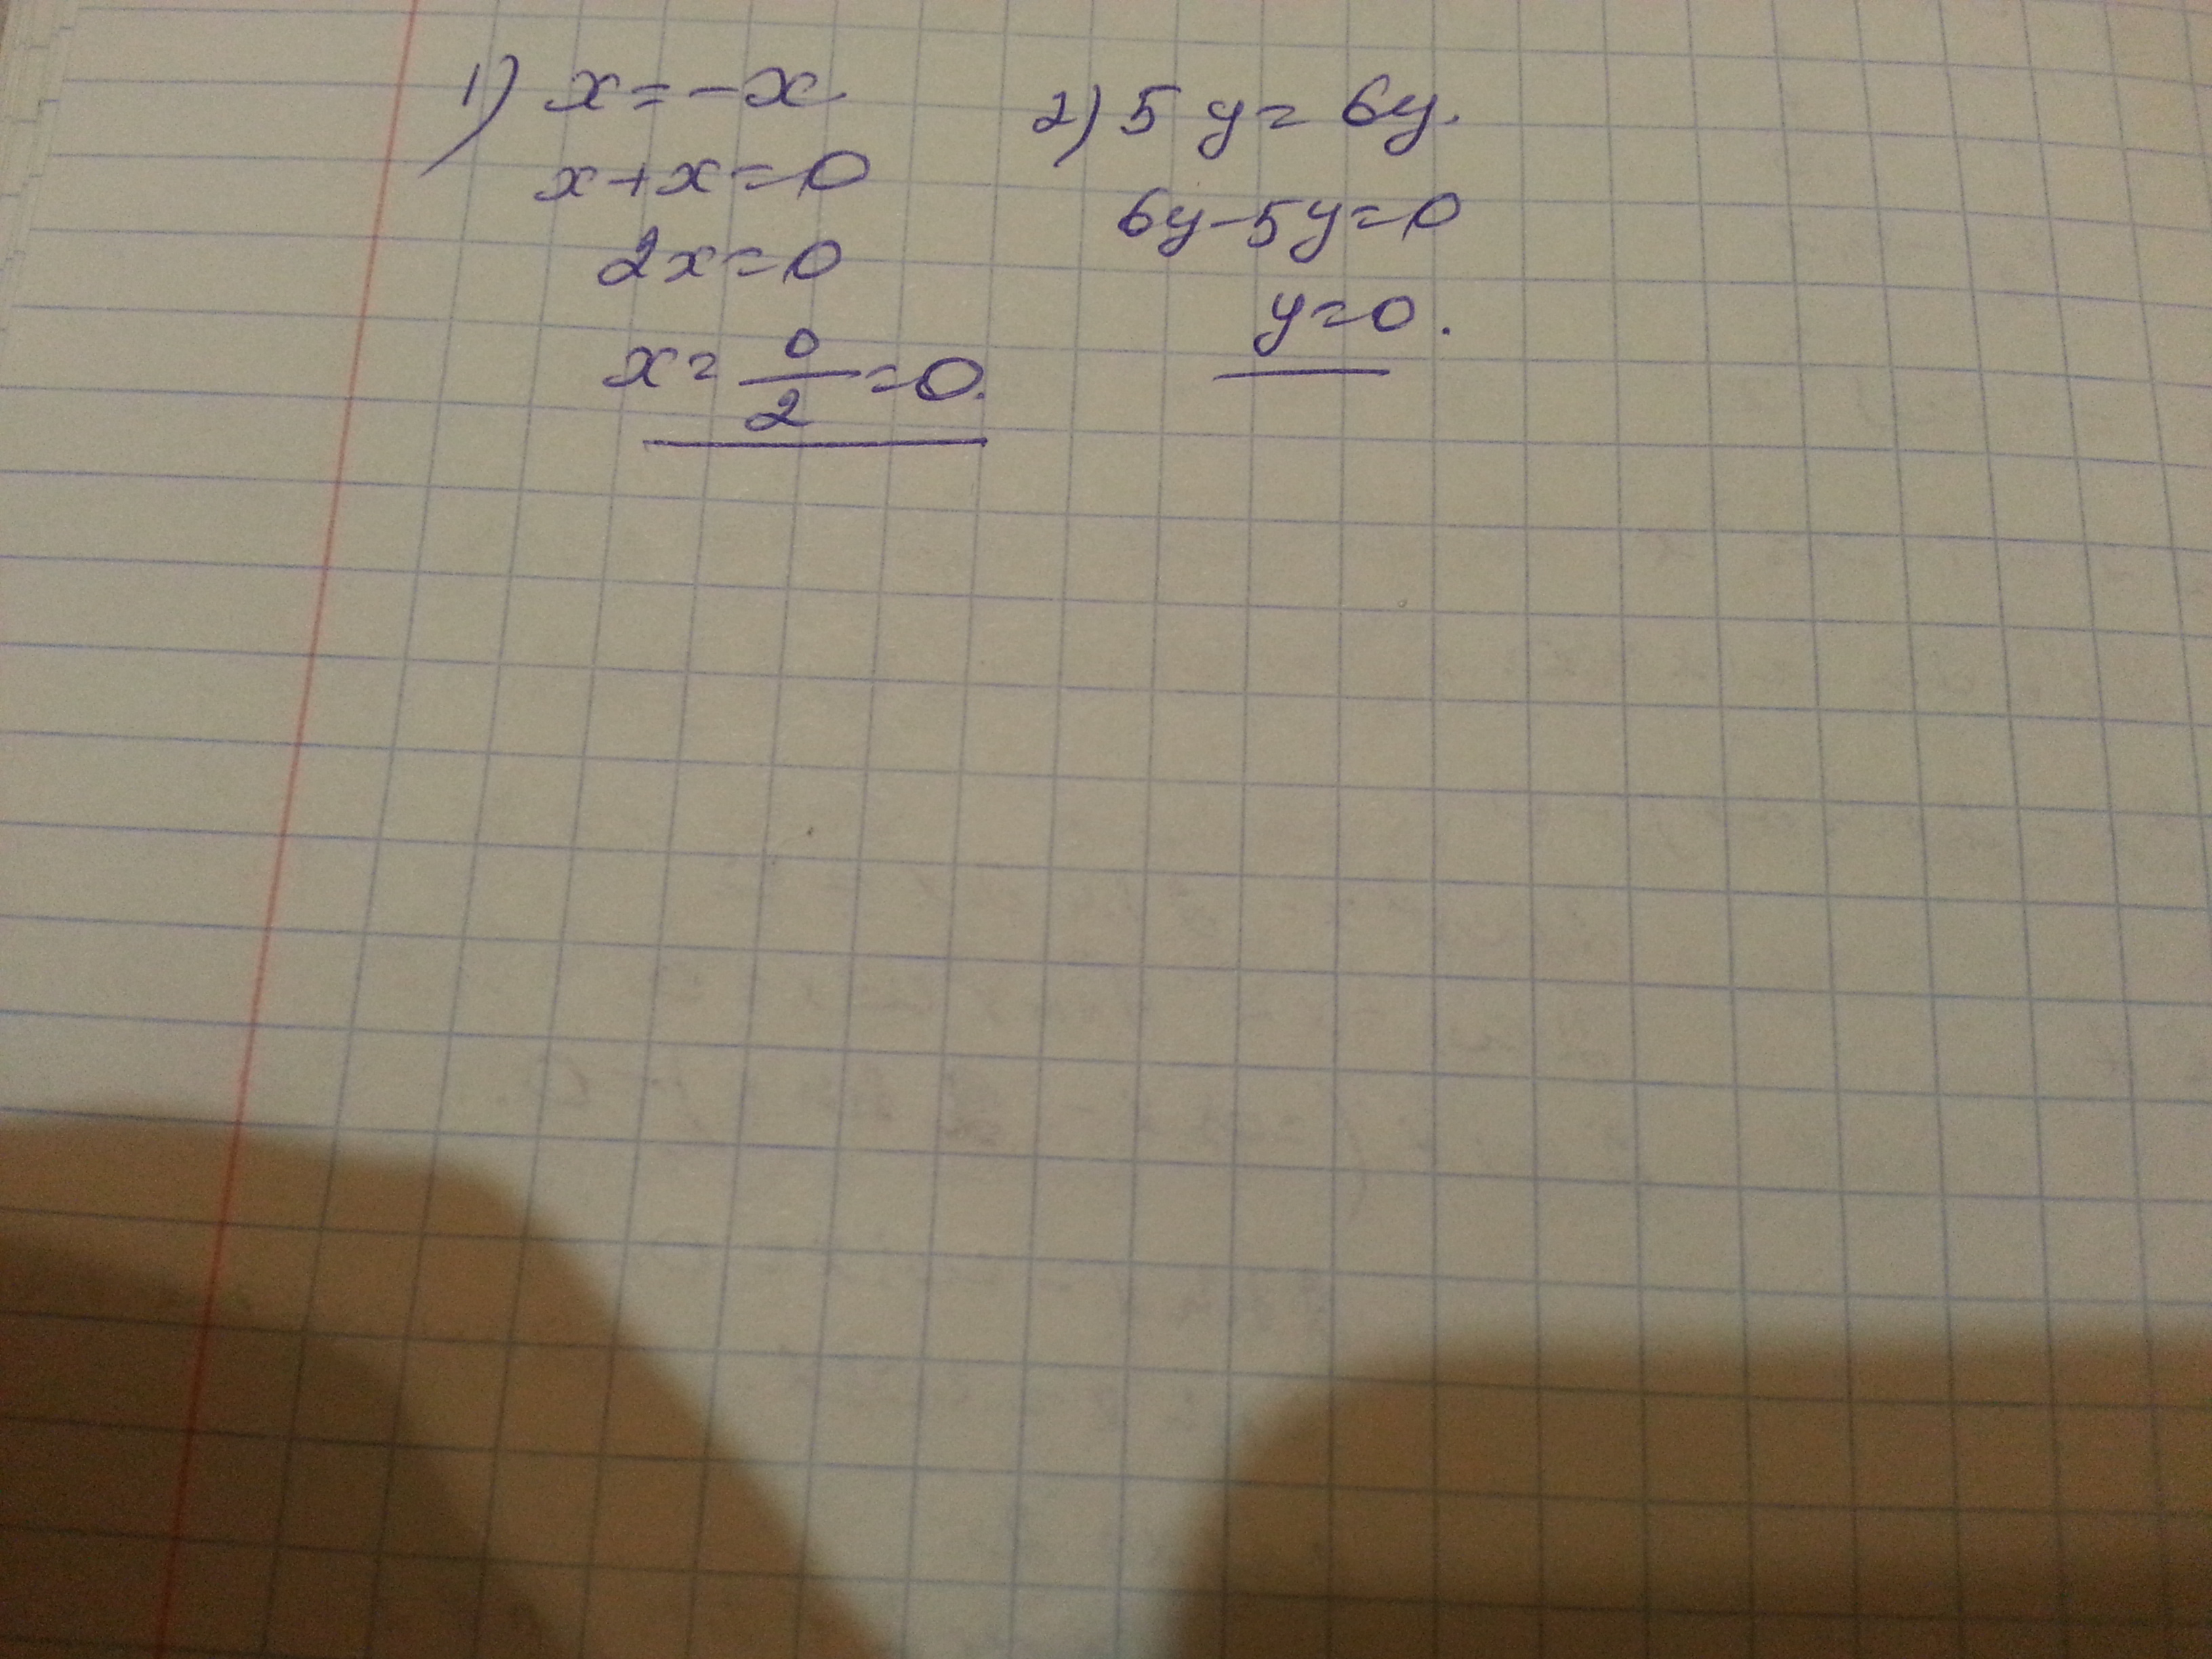 1) x = -x
x + x = 0
2x = 0
x = 0/2 = 0.
2) 5y = 6y.
6y - 5y = 0
y = 0.